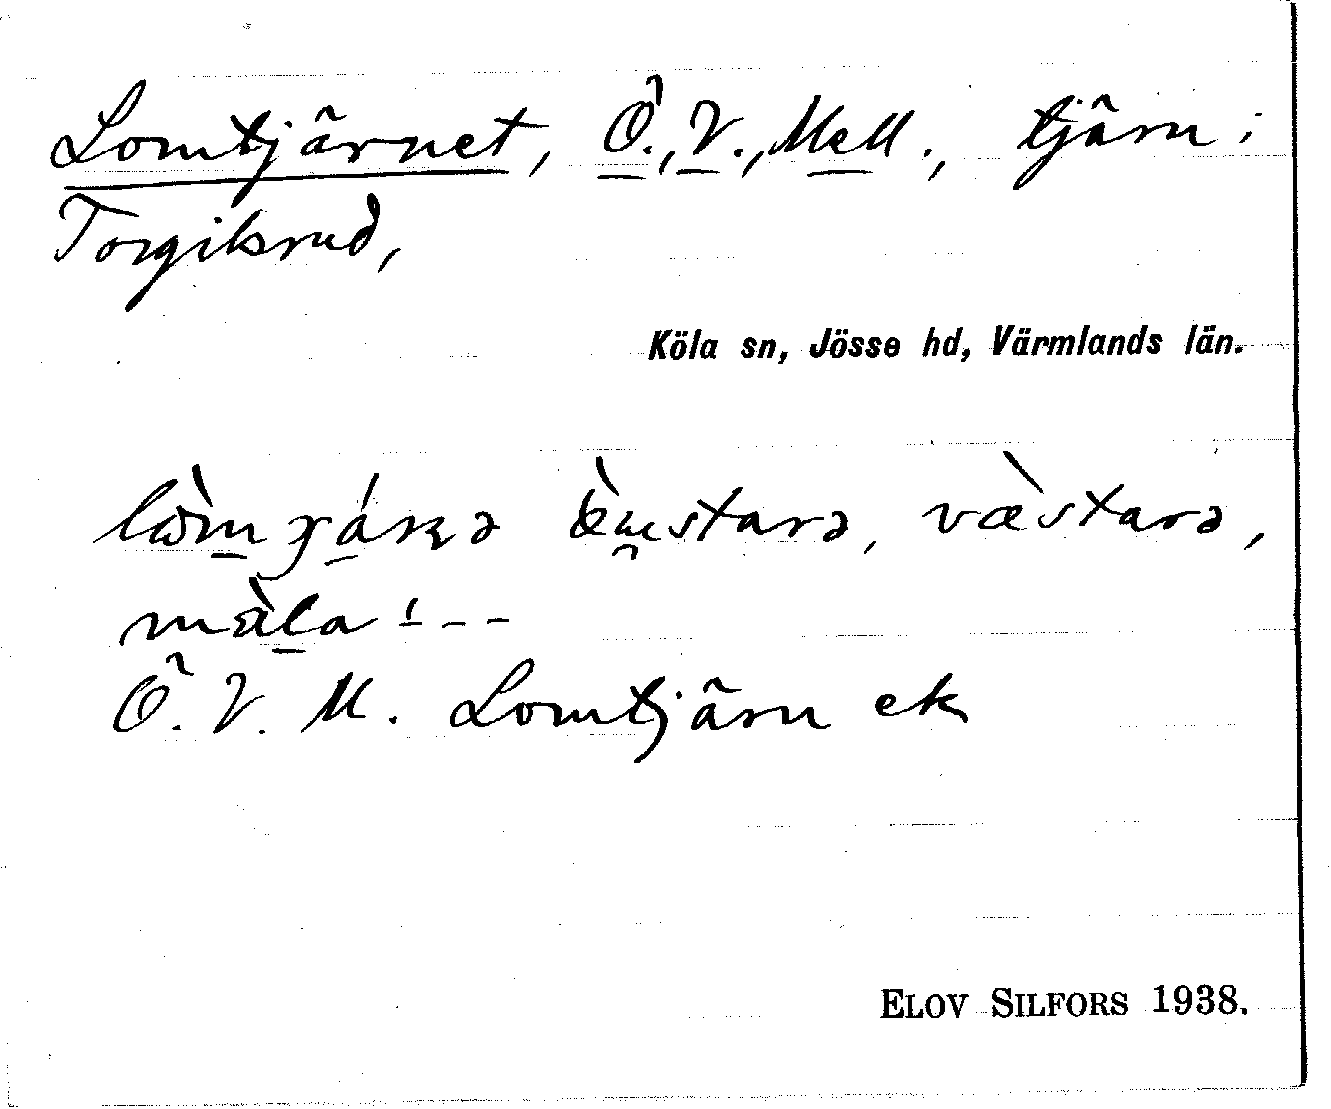 Lomtjärnet, Ö., V., Mell., tjärn i
Torgilsrud,
Köla sn, Jösse hd, Värmlands län.
västarə,
Ö. V. M. Lomtjärn ek
ELOV SILFORS 1938.